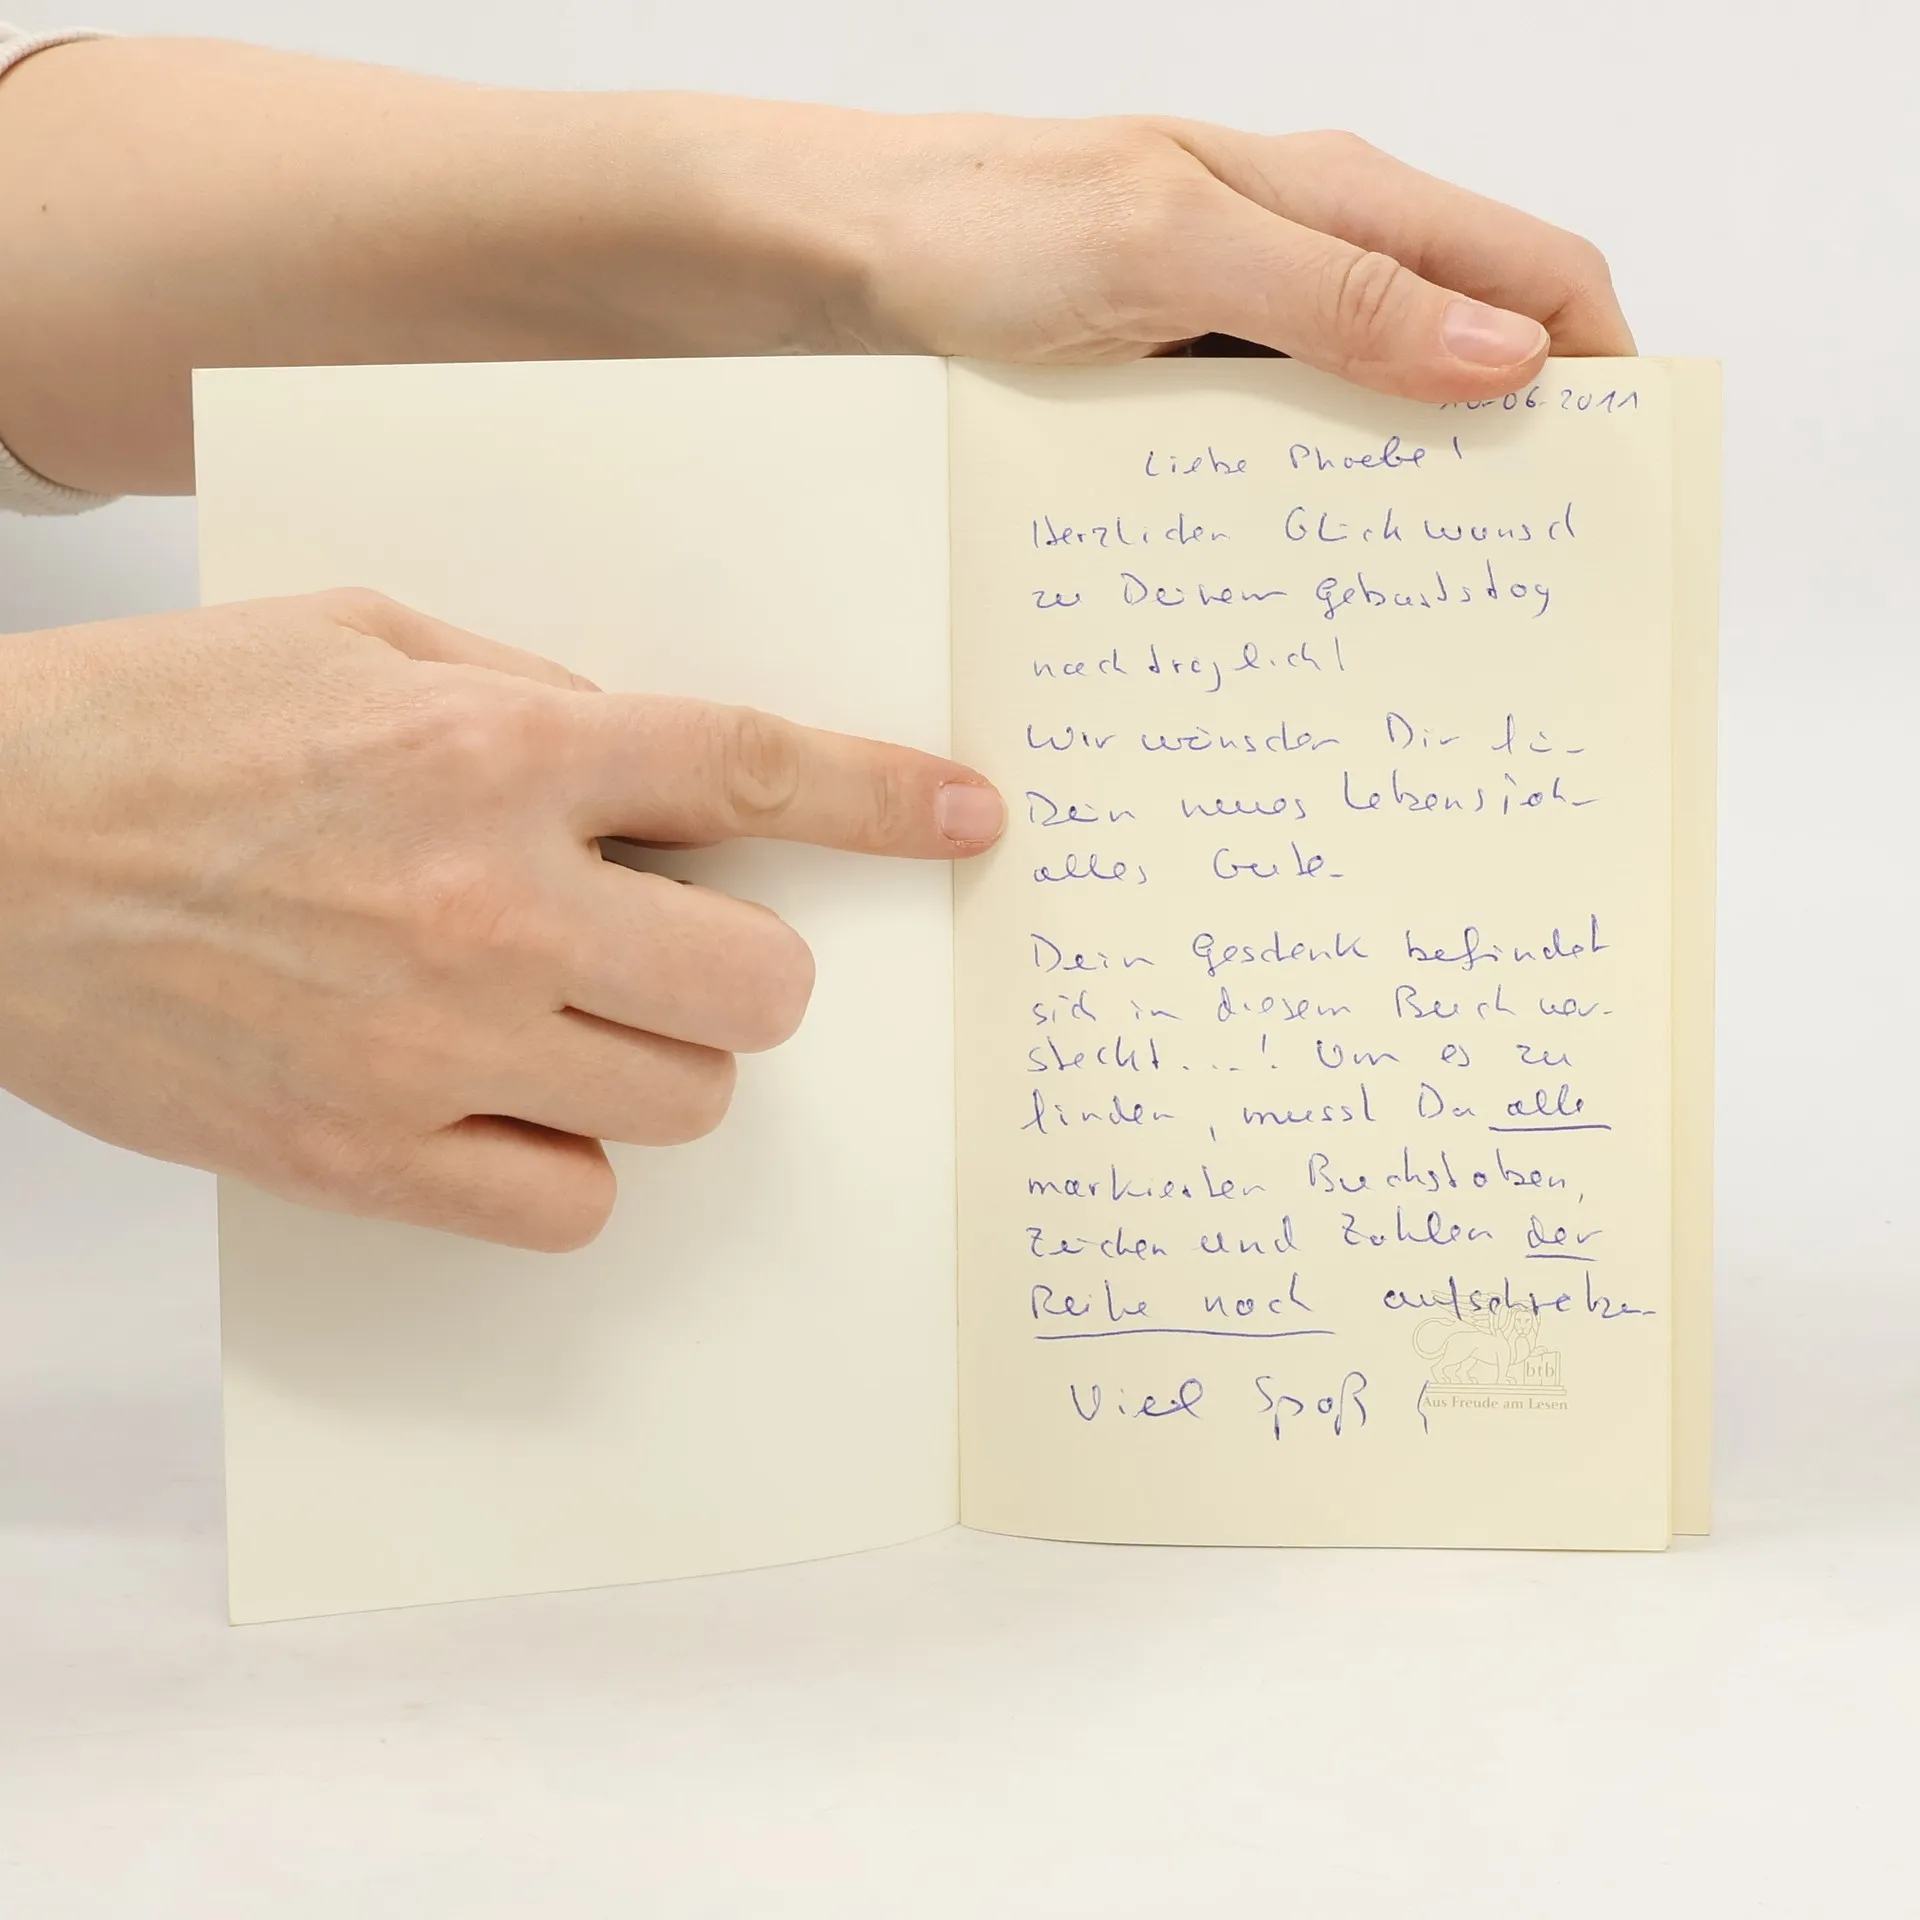 06.2011
Liebe Phoebe!
Herzlichen Glückwunsch
zu Deinem Geburtstag
nachträglich!
Wir wünschen Dir für
Dein neues Lebensjahr
alles Gute.
Dein Geschenk befindet
sich in diesem Buch ver-
steckt....! Um es zu
finden, musst Du alle
markierten Buchstaben,
Zeichen und Zahlen der
Reihe nach aufschreiben.
btb
Aus Freude am Lesen
Viel Spaß!